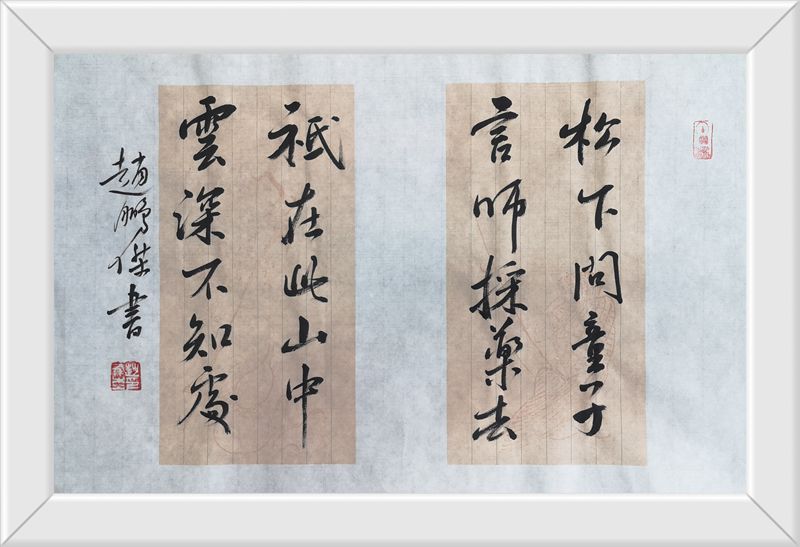 松下問童子
言師採藥去
祗在此山中
雲深不知處
趙鵬傑書